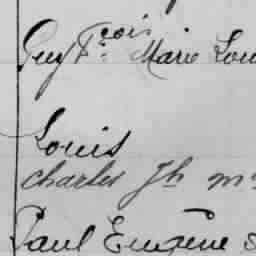 Guy Fçois Marie Lou
Louis
Charles Jh
Paul Eugène